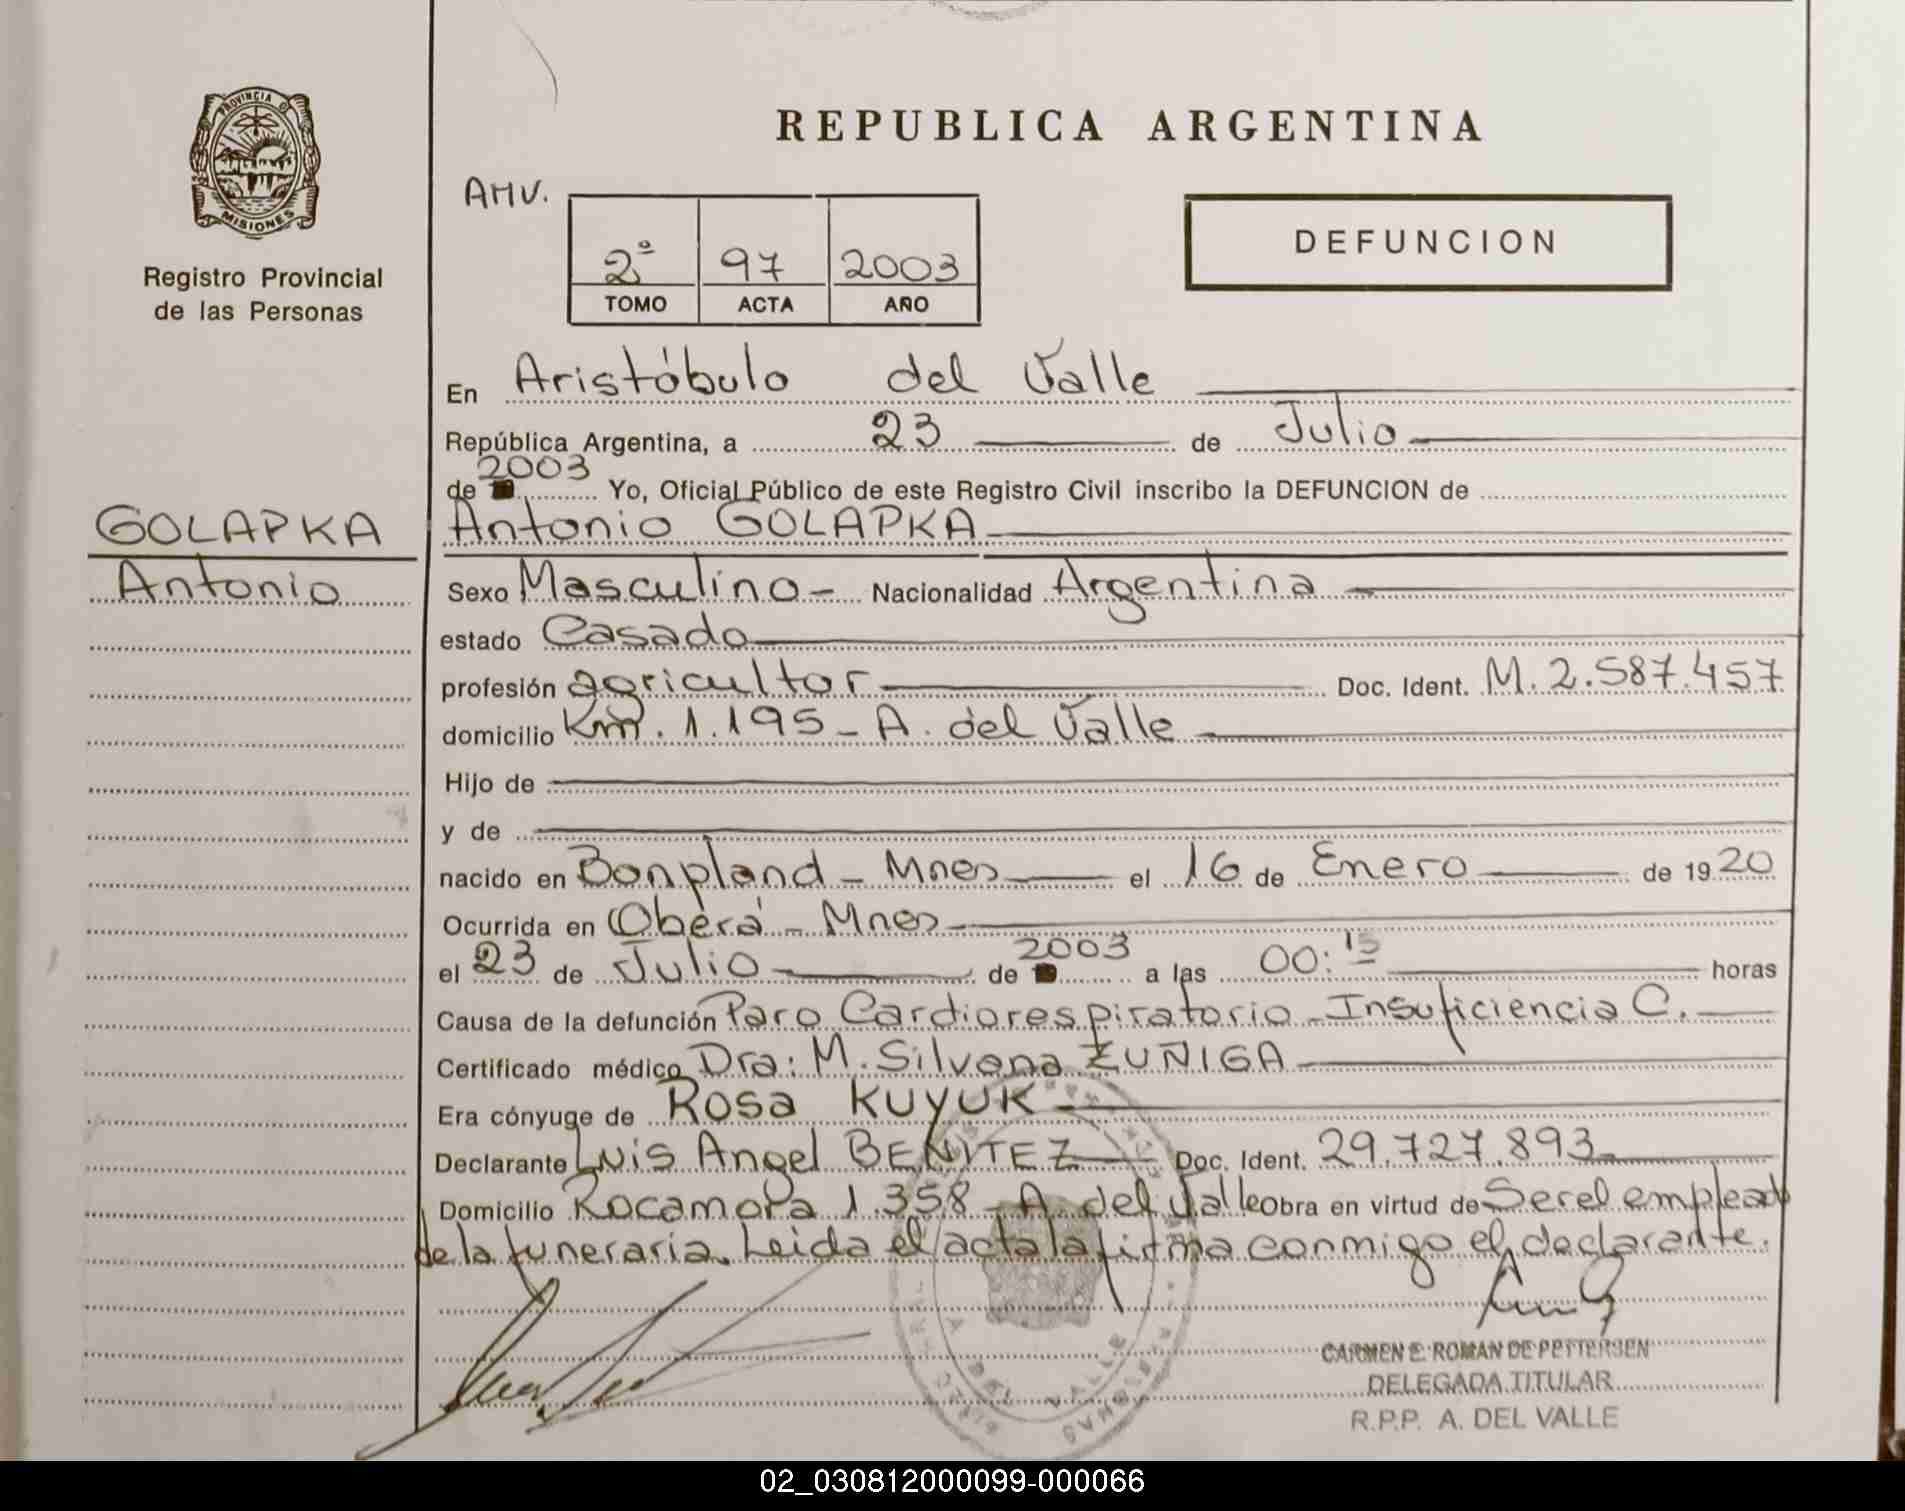 PROVINCIA D
MISIONES
Registro Provincial
de las Personas
REPUBLICA ARGENTINA
AMV.
2º 97 2003
TOMO ACTA AÑO
DEFUNCION
En Aristóbulo del Valle
República Argentina, a 23 de Julio
de 2003 Yo, Oficial Público de este Registro Civil inscribo la DEFUNCION de
GOLAPKA
Antonio
Antonio GOLAPKA
Sexo Masculino - Nacionalidad Argentina
estado Casado
profesión agricultor Doc. Ident. M. 2.587.457
domicilio Km. 1.195 - A. del Valle
Hijo de
y de
nacido en Bonpland - Mnes el 16 de Enero de 1920
Ocurrida en Oberá - Mnes
el 23 de Julio de 2003 a las 00:15 horas
Causa de la defunción Paro Cardiorespiratorio - Insuficiencia C.
Certificado médico Dra: M. Silvana ZUÑIGA
Era cónyuge de Rosa KUYUK
Declarante Luis Angel BENITEZ Doc. Ident. 29.727.893
Domicilio Rocamora 1.358 - A. del Valle Obra en virtud de Ser el empleado
de la funeraria. Leida el acta la firma conmigo el declarante.
A. DEL VALLE
CARMEN E. ROMAN DE PETTERSEN
DELEGADA TITULAR
R.P.P. A. DEL VALLE
02_030812000099-000066